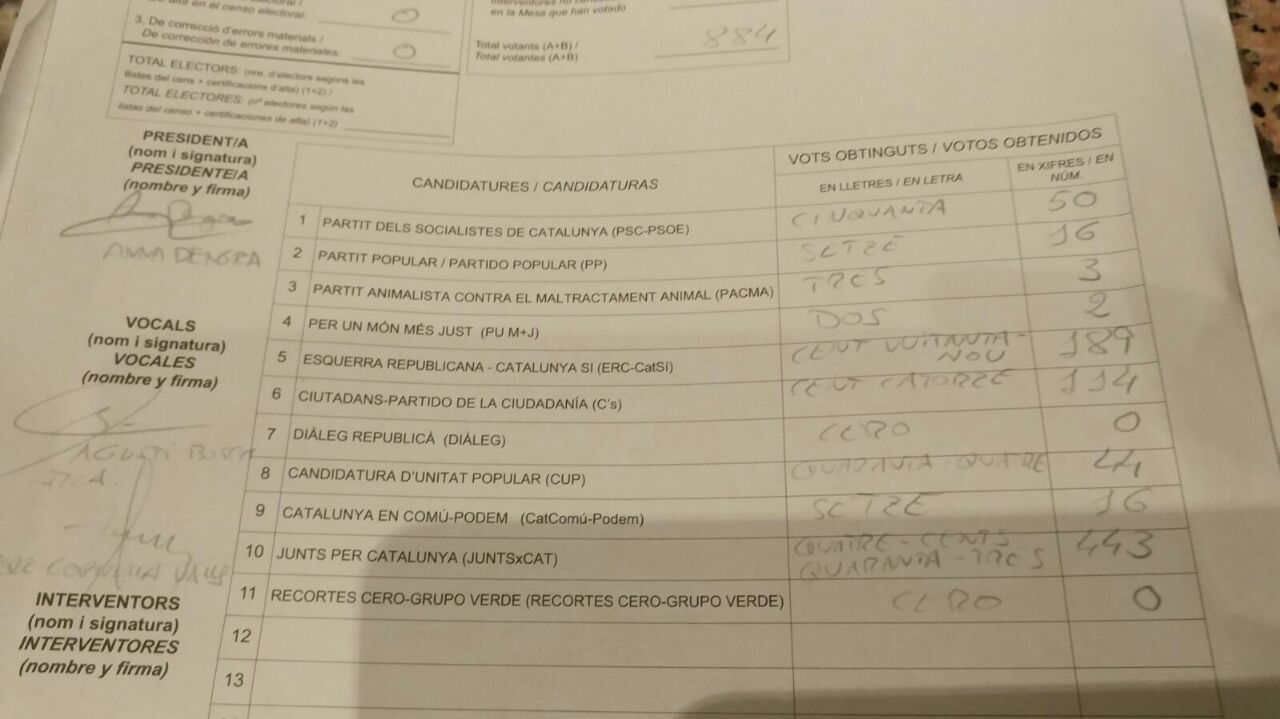 en el censo electoral:
0
3. De correcció d'errors materials /
De corrección de errores materiales:
0
en la Mesa que han votado
Total votants (A+B) /
Total votantes (A+B)
884
TOTAL ELECTORS: (nre. d'electors segons les
llistes del cens + certificacions d'alta) (1+2) /
TOTAL ELECTORES: (nº electores según las
listas del censo + certificaciones de alta) (1+2)
PRESIDENT/A
(nom i signatura)
PRESIDENTE/A
(nombre y firma)
ANNA DENGRA
VOCALS
(nom i signatura)
VOCALES
(nombre y firma)
AGUSTÍ
INTERVENTORS
(nom i signatura)
INTERVENTORES
(nombre y firma)
CANDIDATURES / CANDIDATURAS
VOTS OBTINGUTS / VOTOS OBTENIDOS
EN LLETRES / EN LETRA
EN XIFRES / EN
NÚM.
1 PARTIT DELS SOCIALISTES DE CATALUNYA (PSC-PSOE) CINQUANTA 50
2 PARTIT POPULAR / PARTIDO POPULAR (PP) SETZE 16
3 PARTIT ANIMALISTA CONTRA EL MALTRACTAMENT ANIMAL (PACMA) TRES 3
4 PER UN MÓN MÉS JUST (PU M+J) DOS 2
5 ESQUERRA REPUBLICANA - CATALUNYA SI (ERC-CatSí) CENT VUITANTA- 189
NOU
6 CIUTADANS-PARTIDO DE LA CIUDADANÍA (C's) CENT CATORZE 114
7 DIÀLEG REPUBLICÀ (DIÀLEG) CERO 0
8 CANDIDATURA D'UNITAT POPULAR (CUP) QUARANTA QUATRE 44
9 CATALUNYA EN COMÚ-PODEM (CatComú-Podem) SETZE 16
10 JUNTS PER CATALUNYA (JUNTSxCAT) QUATRE-CENTS 443
QUARANTA-TRES
11 RECORTES CERO-GRUPO VERDE (RECORTES CERO-GRUPO VERDE) CERO 0
12
13